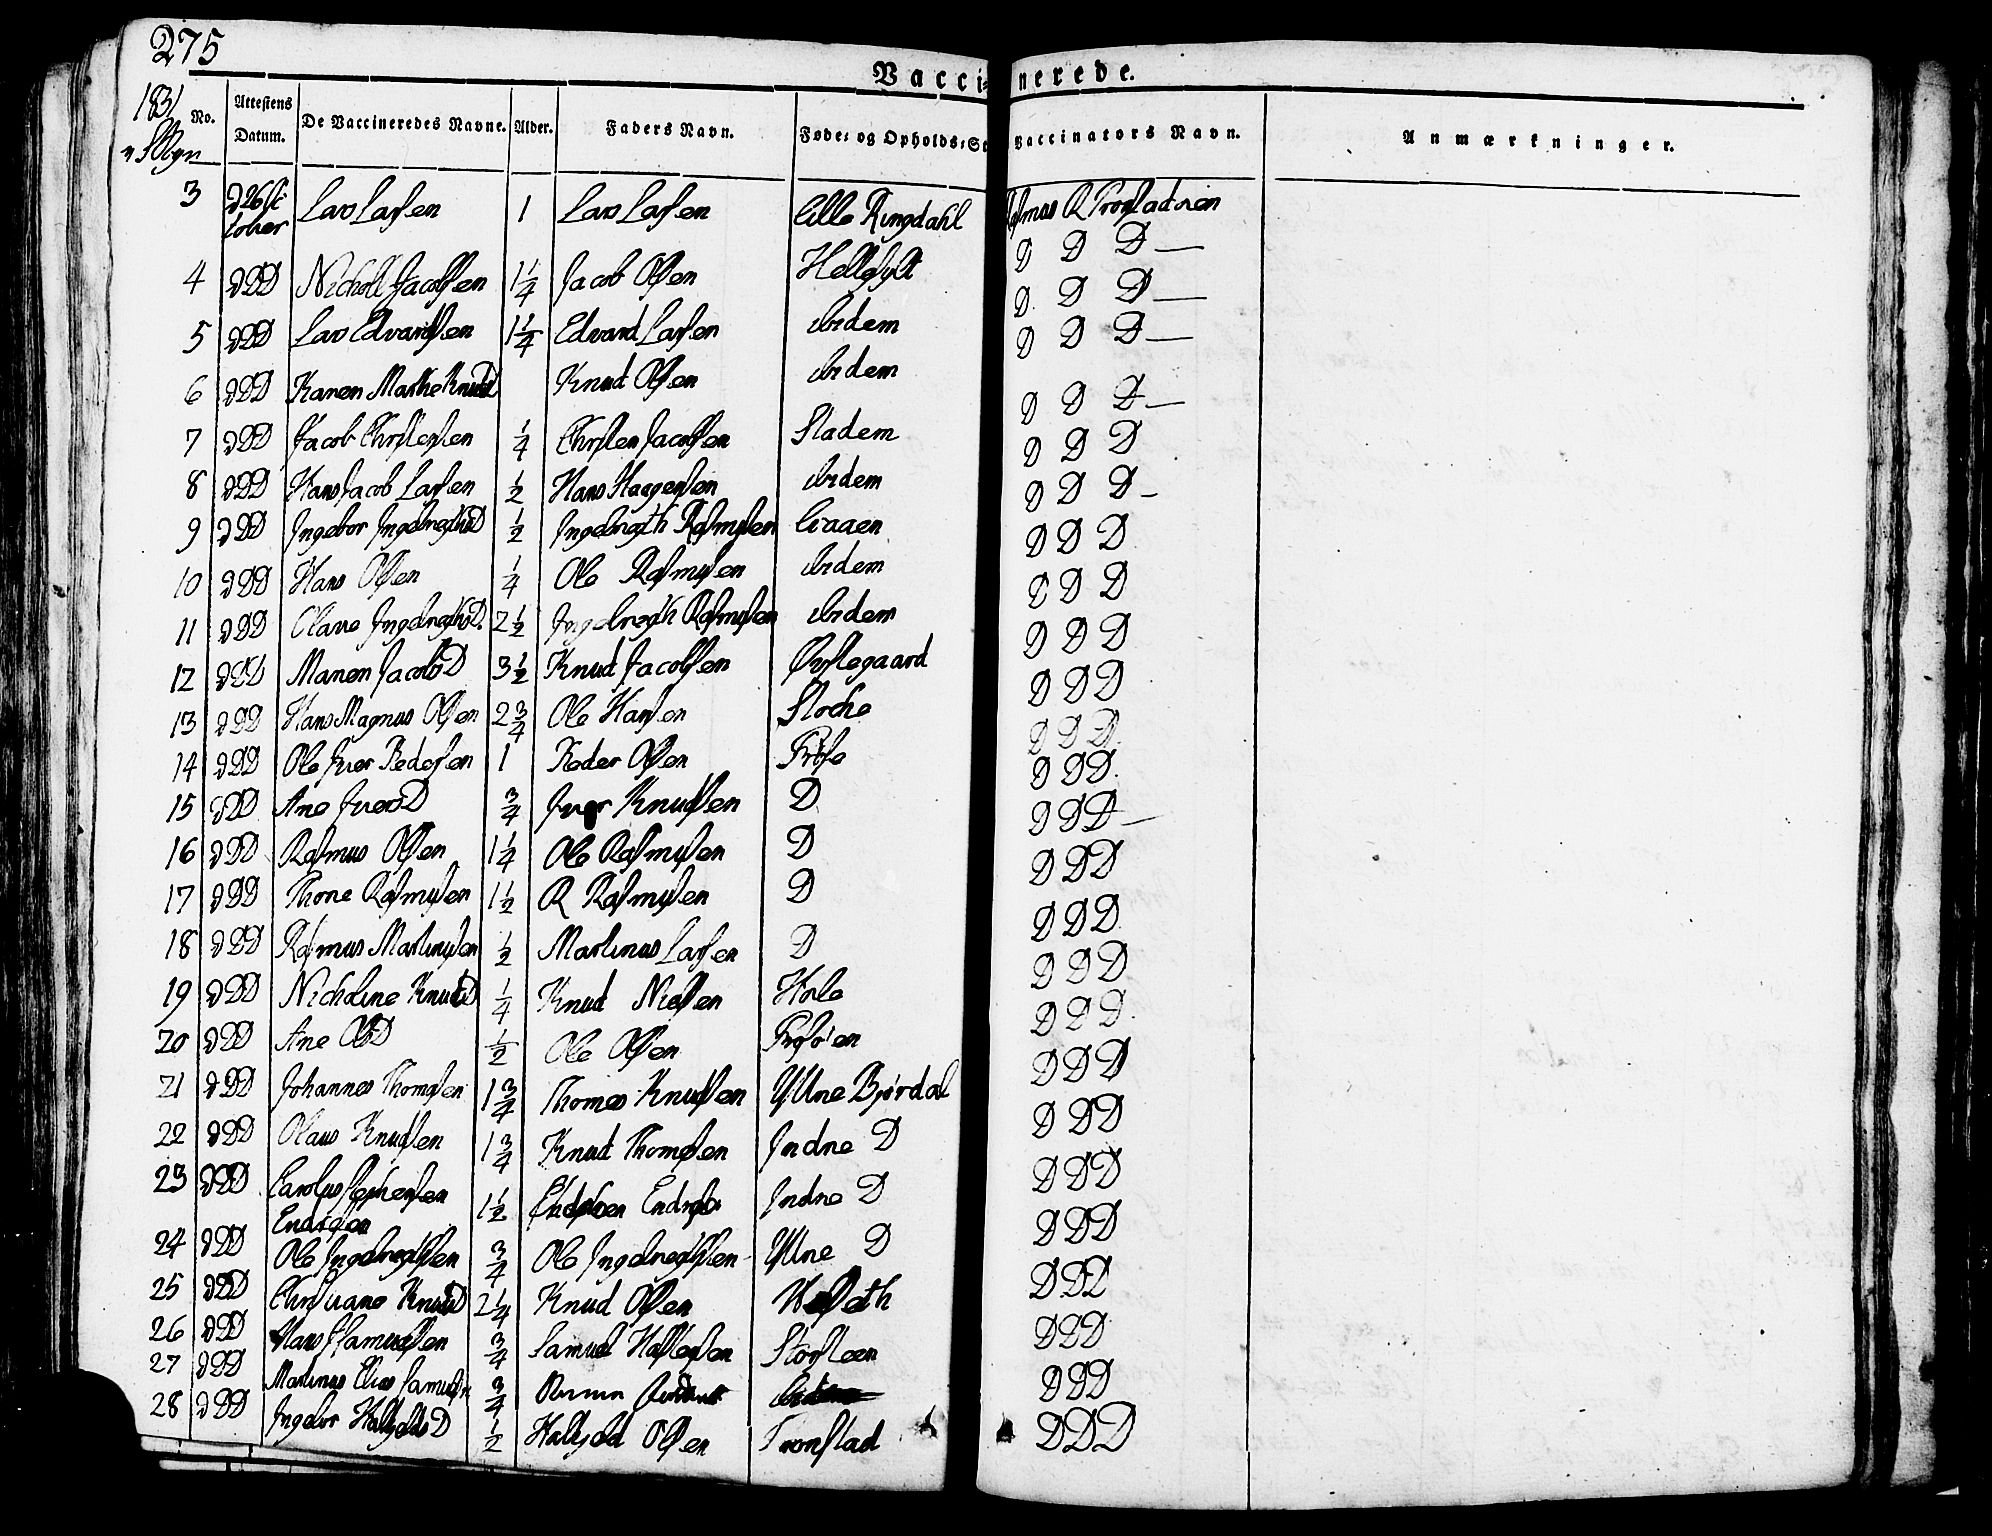 275
Vaccinerede.
1831
No. Attestens Datum. De Vaccineredes Navne. Alder. Faders Navn. Føde- og Opholds-St Vaccinators Navn. Anmærkninger.
3 D 26 October Lars Larsen 1 Lars Larsen Lille Ringdahl Rasmus R Tronstadven
4 D D D Nicholai Jacobsen 1 1/4 Jacob Olsen Hellesylt D D D
5 D D D Lars Edvardsen 1 1/4 Edvard Larsen ibidem D D D
6 D D D Karen Marthe Knuds D Knud Olsen ibidem D D D
7 D D D Jacob Christensen 1/4 Christen Jacobsen Stadem D D D
8 D D D Hans Jacob Larsen 1/2 Hans Haagensen ibidem D D D
9 D D D Ingebor Ingebregths D 1/2 Ingebregth Rasmusen Braaen D D D
10 D D D Hans Olsen 1/4 Ole Rasmusen ibidem D D D
11 D D D Olave Ingebregths D. 2 1/2 Ingebregth Rasmusen ibidem D D D
12 D D D Maren Jacobs D 3 1/2 Knud Jacobsen Øvstegaard D D D
13 D D D Hans Magnus Olsen 2 3/4 Ole Hansen Stoche D D D
14 D D D Ole Iver Pedersen 1 Peder Olsen Frøse D D D
15 D D D Ane Ivers D 3/4 Iver Knudsen D D D D
16 D D D Rasmus Olsen 1 1/4 Ole Rasmusen D D D D
17 D D D Thore Rasmusen 1 1/2 R Rasmusen D D D D
18 D D D Rasmus Martinusen 1/2 Martinus Larsen D D D D
19 D D D Nicholine Knuds D 1/4 Knud Nielsen Hole D D D
20 D D D Ane Ols D 1/2 Ole Olsen Frøsøen D D D
21 D D D Johannes Thomasen 1 3/4 Thomes Knudsen Yttne Bjørdal D D D
22 D D D Olaus Knudsen 1 3/4 Knud Thomesen Indre D D D D
23 D D D Carolus Stephensen 1 1/2 Indre D D D D
Endresen
24 D D D Ole Ingebregthsen 3/4 Ole Ingebregthsen Yttne D D D D
25 D D D Christiane Knuds D 2 1/4 Knud Olsen D D D
26 D D D Hans Samuelsen 3/4 Samuel Hallesen Storsteen D D D
27 D D D Martinus Elias Samuelsn 3/4 D D D
28 D D D Ingebor Halkjelds D 1/2 Halkjeld Olsen Tronstad D D D